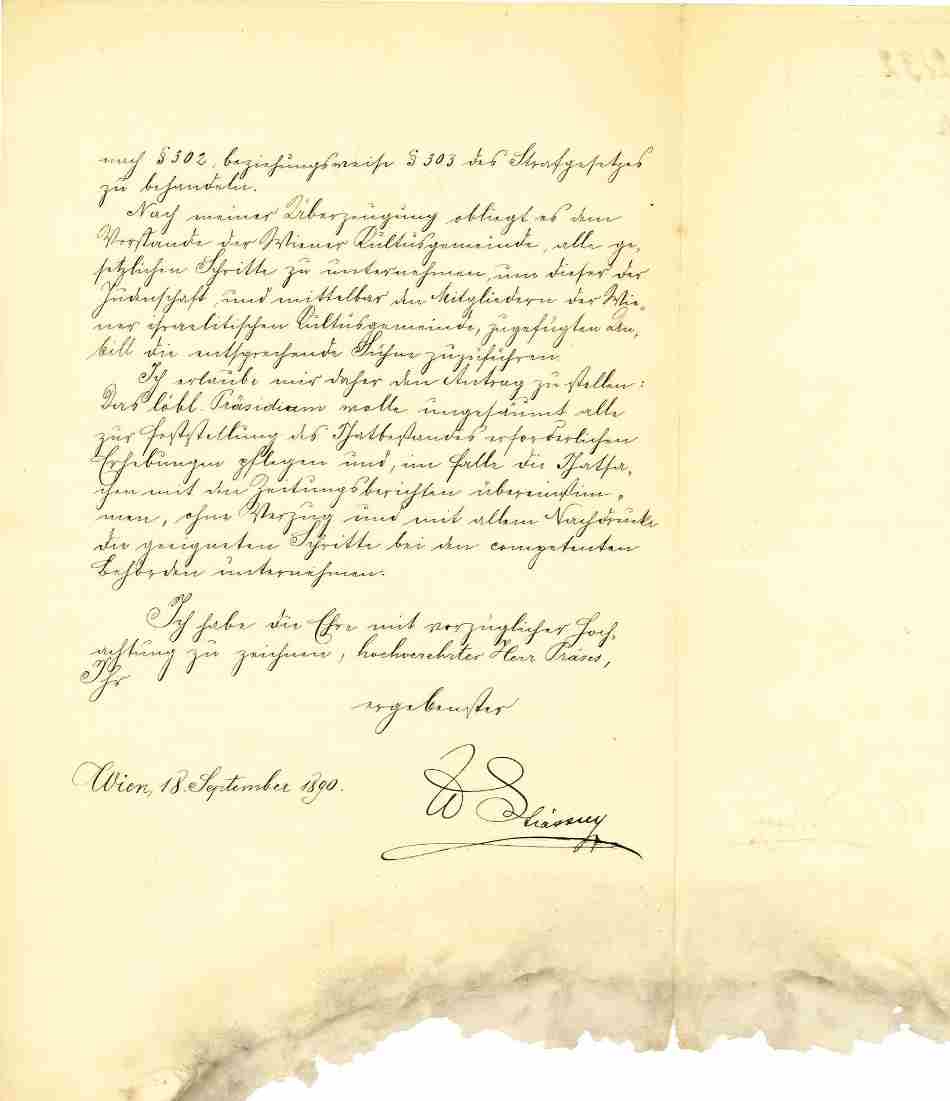 nach § 302, beziehungsweise § 303 des Strafgesetzes
zu behandeln.
Nach meiner Überzeugung obliegt es dem
Vorstande der Wiener Kultusgemeinde, alle ge-
setzlichen Schritte zu unternehmen, um dieser der
Judenschaft, und mittelbar den Mitgliedern der Wie-
ner israelitischen Kultusgemeinde, zugefügten Un-
bill die entsprechende Sühne zuzuführen.
Ich erlaube mir daher den Antrag zu stellen:
Das löbl. Präsidium wolle ungesäumt alle
zur Feststellung des Thatbestandes erforderlichen
Erhebungen pflegen und, im Falle die Thatsa-
chen mit den Zeitungsberichten übereinstim-
men, ohne Verzug und mit allem Nachdrucke
die geeigneten Schritte bei den competenten
Behörden unternehmen.
Ich habe die Ehre mit vorzüglicher Hoch-
achtung zu zeichnen, hochverehrter Herr Präses,
Ihr
ergebenster
Wien, 18. September 1890.
W Stiassny